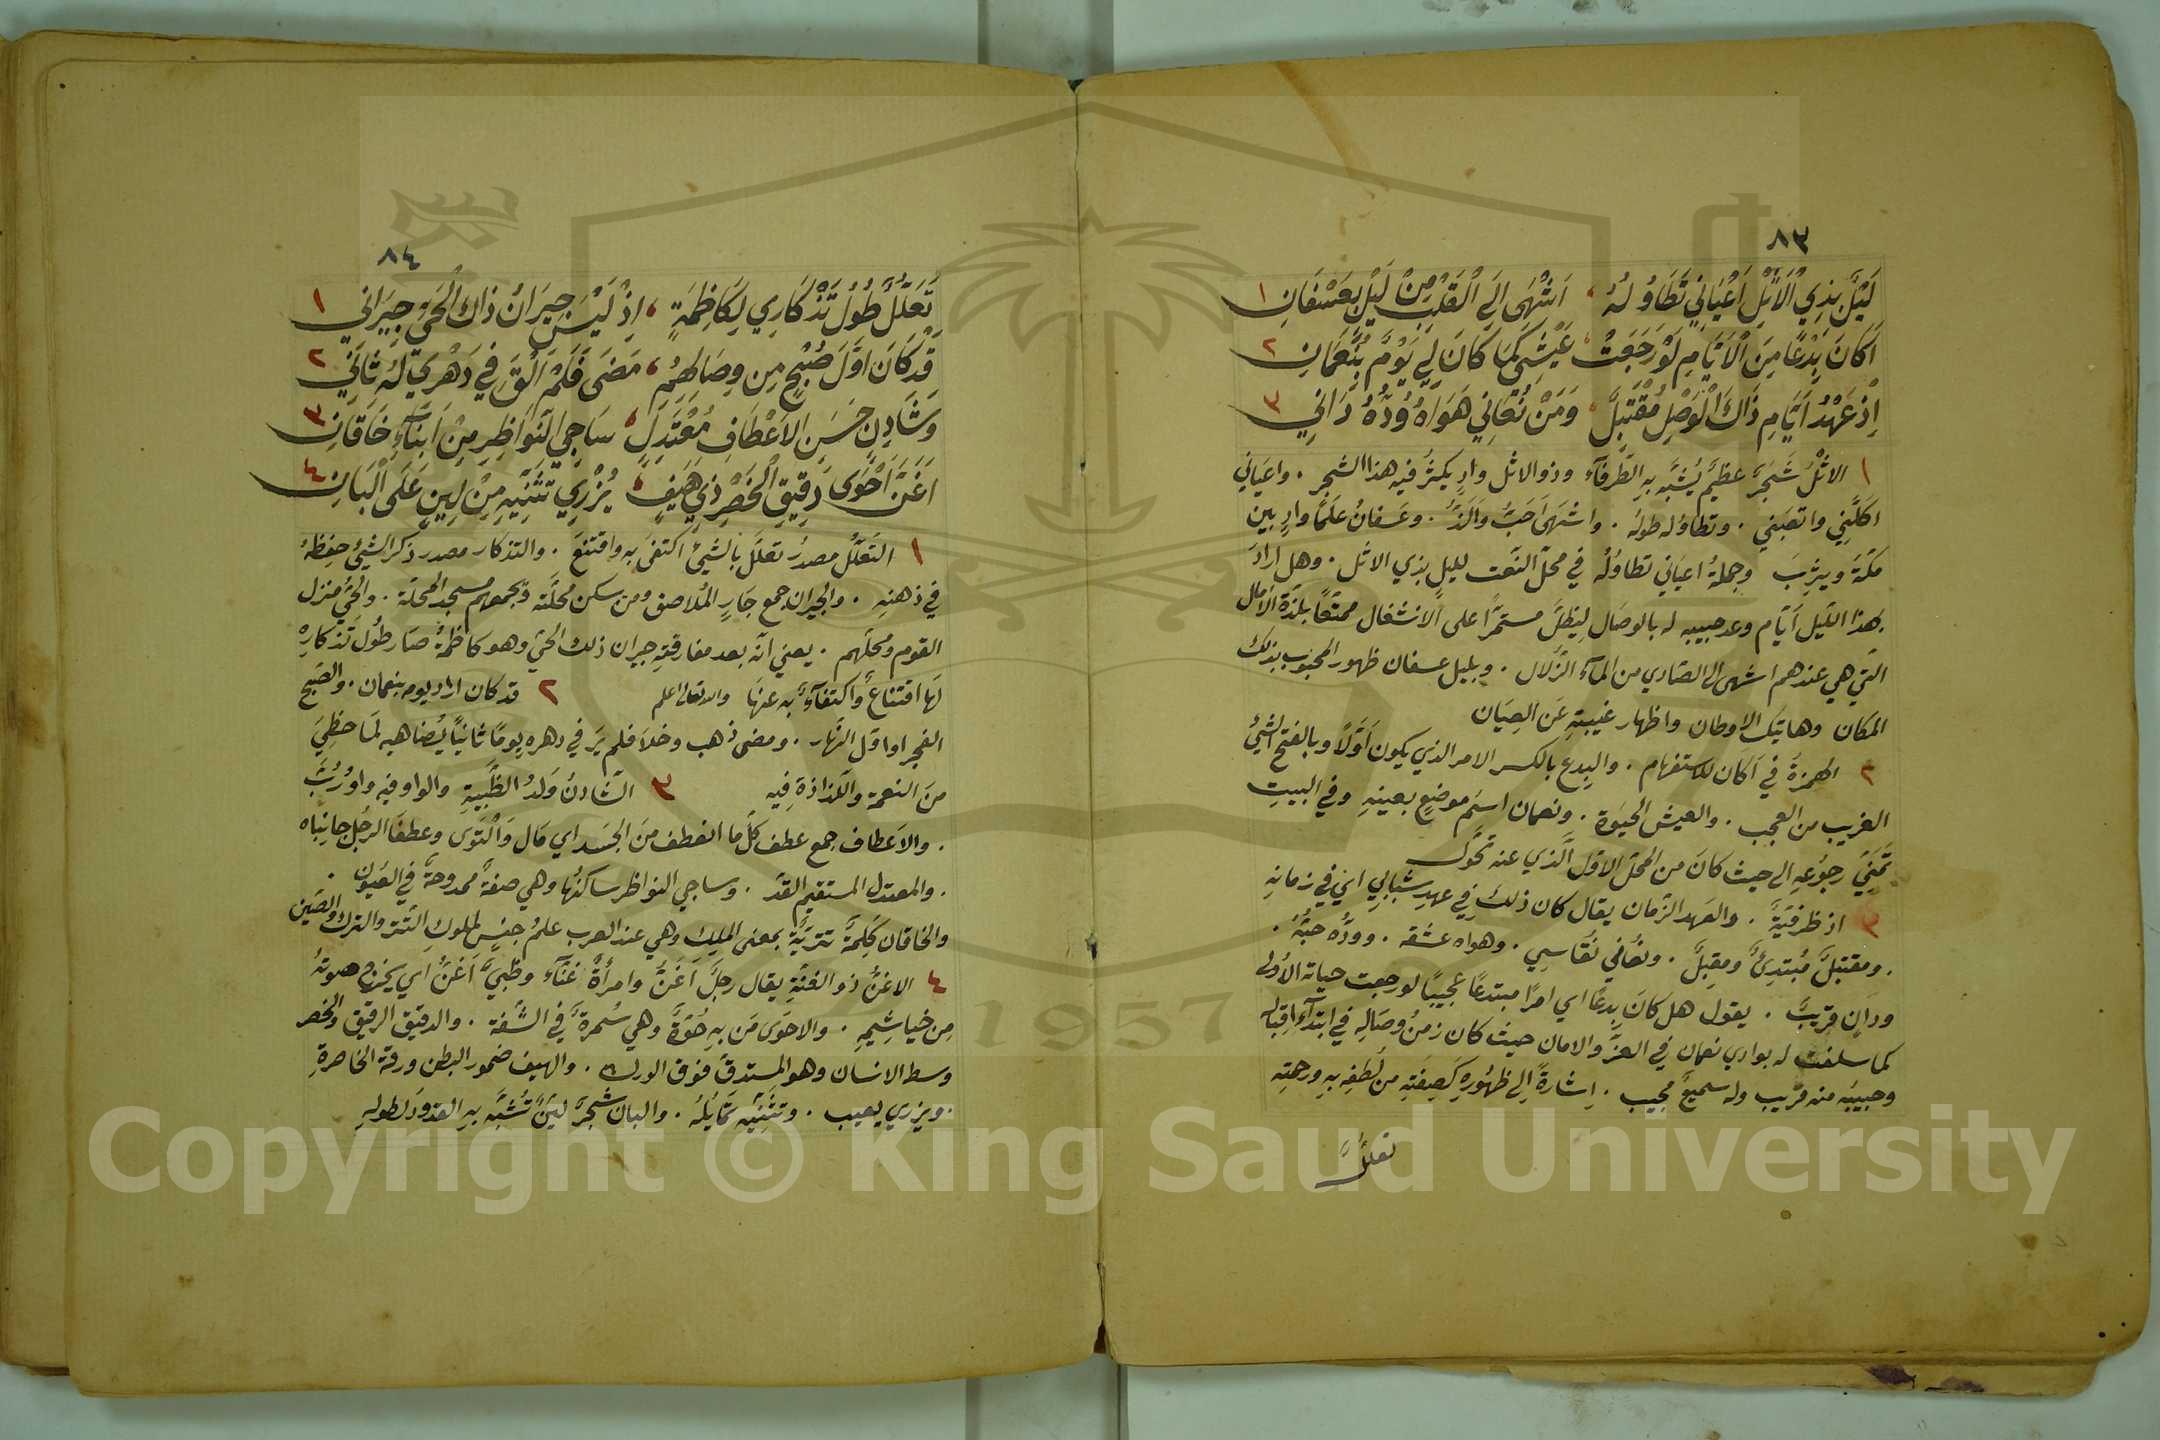 ٨٣
لَيْلٌ بِذِي الْاَثْلِ اَعْيَانِي تَطَاوُلُهُ ، اَشْهَى اِلَى الْقَلْبِ مِنْ لَيْلٍ بِعَسْفَانِ ١
اَكَانَ بِدْعًا مِنَ الْاَيَّامِ لَوْ رَجَعَتْ ، عَيْشِي كَمَا كَانَ لِي يَوْمٌ بِنُعْمَانِ ٢
اِذْ عَهْدُ اَيَّامِ ذَاكَ الْوَصْلِ مُقْتَبِلٌ ، وَمَنْ نُعَانِي هَوَاهُ وُدُّهُ دَانِي ٣
١ الاثْلُ شَجَرٌ عظيمٌ يُشبَّه بِهِ الطَّرفآء وذو الاثل وادٍ يكثرُ فيه هذا الشجر . واعيَاني
اكَلَّنِي واتعَبَني . وتطاوُله طولهُ . واشهَى اَحَبّ وَاَلَذّ . وعسفانُ علمًا وادٍ بين
مكّةَ ويثربَ وجملةُ اعيَاني تطاوُلُهُ في محلّ النّعت لليلٍ بذي الاثل . وهل ارادَ
بهذا اللّيل اَيّام وعد حبيبه له بالوصَال لِيَظلَّ مستمرًّا على الانشغال ممتّعًا بلذّة الآمال
التي هي عندهم اشهى الى الصّادي من المآء الزُّلال . وبليل عسفان ظهور المحبوب بذلك
المكان وهاتيك الاوطان واظهار غيبتهِ عَن العِيَان
٢ الهمزةُ في اَكان للاستفهام . والبِدع بالكسر الامر الذي يكون اَوّلًا وبالفتح الشيئُ
الغريب من العجب . والعيش الحيوة . ونعمان اسم موضعٍ بعينهِ وفي البيتِ
تَمَنِّي رجُوعهِ الى حيث كانَ من المحلّ الاوّل الّذي عنه تحَوّل
٣ اذ ظرفيّةٌ . والعَهد الزّمان يقال كان ذلكَ في عهدِ شبَابي اي في زمانهِ
. ومقتبلٌ مُبتدِئٌ ومقبِلٌ . ونعَاني نقاسِي . وهواه عشقه . وودّه حبّهُ .
ودانٍ قريبٌ . يقول هل كانَ بِدعًا اي امرًا مبتدعًا عجيبًا لو رجعت حياته الاُولى
كما سلفت له بوادي نعمان في العزّ والامان حيث كان زمنُ وصَالهِ في ابتدآءِ اقبالهِ
وحبيبهُ منه قريب وله سميعٌ مجيب . اِشارةً اِلى ظهُورهِ كَصِيفَتهِ من لُطفِه بهِ ورحمتهِ
تعلّلٌ
٨٤
تَعَلُّلٌ طُولُ تَذْكَارِي لِكَاظِمَةٍ ، اِذْ لَيْسَ جِيرَانُ ذَاكَ الْحَيِّ جِيرَانِي ١
قَدْ كَانَ اَوَّلَ صُبْحٍ مِن وِصَالِهِمُ ، مَضَى فَلَمْ اَلْقَ فِي دَهْرِي لَهُ ثَانِي ٢
وَشَادِنٍ حَسَنِ الاَعْطَافِ مُعْتَدِلٍ ، سَاجِي النَّوَاظِرِ مِنْ اَبْنَآءِ خَاقَانِ ٣
اَغَنَّ اَحْوَى دَقِيقِ الْخَصْرِ ذِي هَيَفٍ ، يُزْرِي تَثَنِّيهِ مِنْ لِينٍ عَلَى الْبَانِ ٤
١ التَعلّل مصدرُ تعلّلَ بالشّيئ اكتفى به واقتنعَ . والتذكار مصدر ذكر الشيئ حفِظهُ
في ذهنهِ . والجيران جمع جَارٍ المُلاصق ومن سكن محلّته ويجمعهم مسجد المحلّة . والحيّ منزل
القوم ومحلّهم . يعني انّه بعد مفارقتهِ جيران ذلك الحيّ وهو كاظمةُ صَار طُول تَذكارهِ
لَها اقتناعًا واكتفآءً بهِ عنهَا والله تعالى اعلم ٢ قد كان اراد يومه بنعمان . والصّبح
الفجر او اوّل النهار . ومضى ذهب وخلاَ فلم يَر في دهرهِ يومًا ثانيًا يُضاهيه لمَا حظِيَ
منَ النعمة واللّذاذةِ فيه ٣ الشّادنُ وَلدُ الظَّبيةِ والواو فيه واو رُبَّ
. والاَعطاف جمع عطف كلُّ ما انعطف منَ الجَسَد اي مَال وَالْتَوى وعطفَا الرجُل جانباه
. والمعتدل المستقيم القدّ . وساجي النواظر ساكنُها وهي صفةٌ ممدوحةٌ في العيُون .
والخاقان كلمةٌ تتريّةٌ بمعنى الملِك وهي عند العرب علمُ جنسٍ لملوكِ التّتر والترك والصّين
٤ الاغنّ ذو الغنّةِ يقال رجلٌ اَغنُّ وامرأةٌ غنّآء وظبيٌ اَغنُّ اَي يخرُجُ صوتهُ
مِن خياشيمهِ . والاحوَى مَن بهِ حُوّةٌ وهي سُمرةٌ في الشّفة . والدقيق الرقيق والخصر
وسط الانسان وهو المستدقّ فوق الورك . والهيف ضمور البطن ورقة الخاصرةِ
. ويزري يعيب . وتثنّيه تمَايُلهُ . والبان شجرٌ ليّنٌ تُشبَّه بهِ القدُود لطولهِ